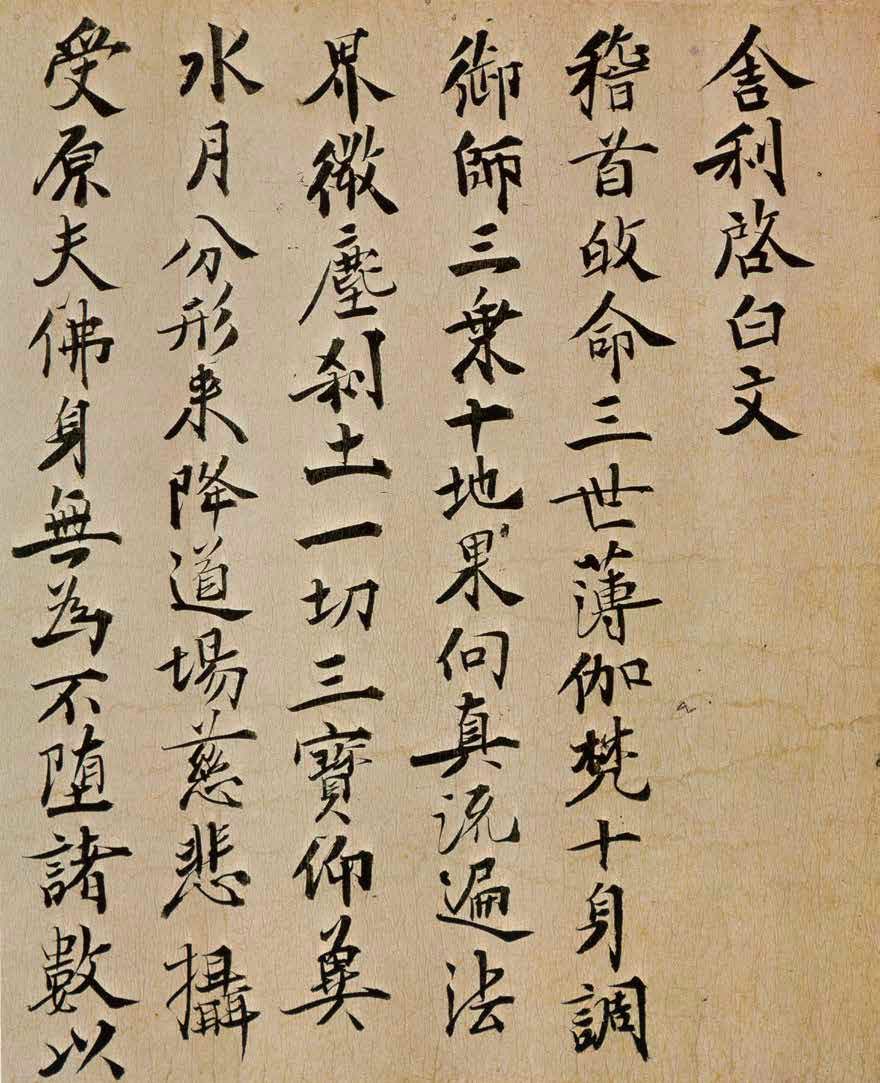 舍利啓白文
稽首皈命三世薄伽梵十身調
御師三乗十地果向真流遍法
界微塵刹土一切三寶仰冀
水月分形来降道場慈悲攝
受原夫佛身無為不堕諸數以